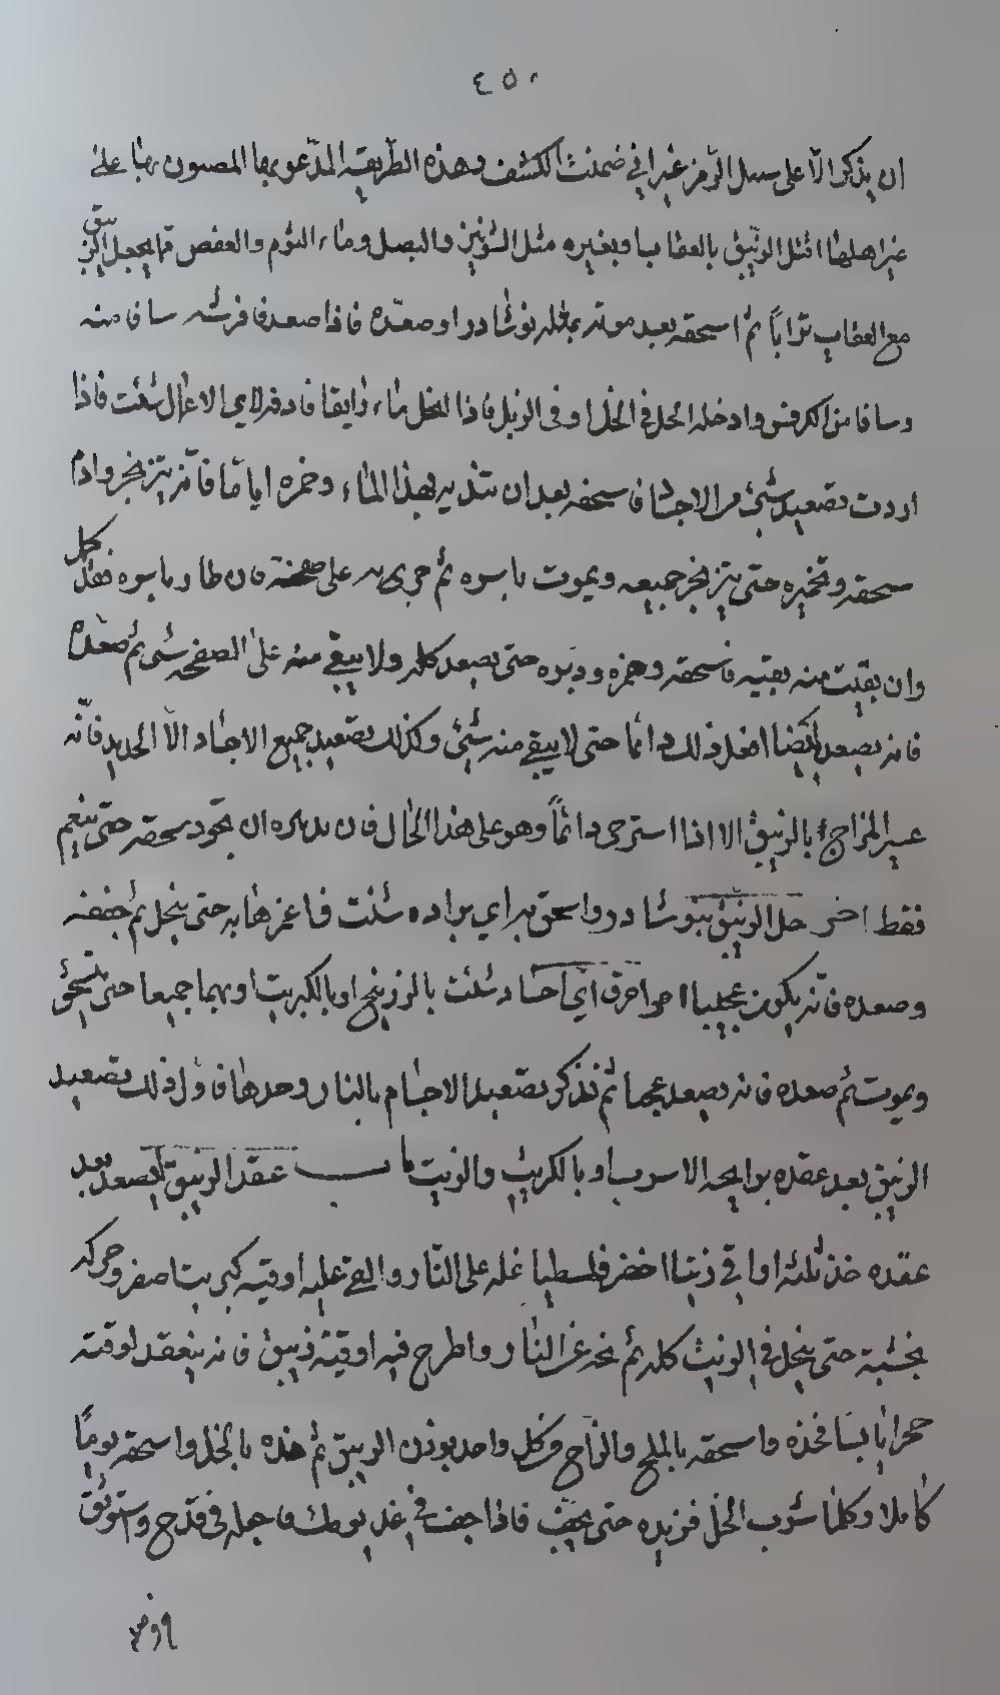 ٤٥٠
ان يذكر الا على سبيل الرمز غيرا في ضمنت الكشف وهذه الطريقه المدعو بها المصون بها على
غير اهلها اقتل الزئبق بالعقاب او بغيره مثل الشونيز والبصل وماء الثوم والعفص مما يجعل الزيبق
مع العقاب ترابا ثم اسحقه بعد موته بمثله نوشادر او صعده فاذا صعد فافرشه سافا منه
وسافا من الكرفس وادخله الحل في الخل او في الزبل فاذا انحل ماء رايقا فادفنه لاي الاعمال شئت فاذا
اردت تصعيد شئ من الاجساد فاسحقه بعد ان تنديه بهذا الماء وخمره اياما فانه يتزنجر وادم
سحقه وتخميره حتى يتزنجر جميعه ويموت باسره ثم جربه على صفيحة فان طار باسره فقد كمل
وان بقيت منه بقيه فاسحقه وخمره ودبره حتى يصعد كله ولا يبقى منه على الصفحه شئ ثم صعده
فانه يصعد ايضا افعل ذلك دائما حتى لا يبقى منه شئ وكذلك تصعيد جميع الاجساد الا الحديد فانه
عسر المزاج بالزئبق الا اذا استرخى دائما وهو على هذا الحال فان تدبيره ان تجود سحقه حتى ينعم
فقط اخر حل الزيبق بنوشادر واسحق به اي براده شئت فاغمرها به حتى ينحل ثم جففه
وصعده فانه يكون عجيبا احرق اي اجساد شئت بالزرنيخ او بالكبريت او بهما جميعا حتى ينسحق
ويموت ثم صعده فانه يصعد عجيبا ثم نذكر تصعيد الاجسام بالنار وحدها فاول ذلك تصعيد
الزيبق بعد عقده برايحه الاسرب او بالكبريت والزيت باب عقد الزيبق ليصعد بعد
عقده خذ ثلثه اواقي زيتا اخضر فلسطيا غله على النار والقي عليه اوقيه كبريتا اصفر وحركه
بخشبة حتى ينحل في الزيت كله ثم نحه عن النار واطرح فيه اوقية زيبق فانه ينعقد لوقته
حجرا يابسا فخذه واسحقه بالملح والزاج وكل واحد بوزن الزيبق ثم غذه بالخل واسحقه يوما
كاملا وكلما شرب الخل فزيده حتى يجف فاذا جف في غد يومك فاجعله في قدح واستوثق